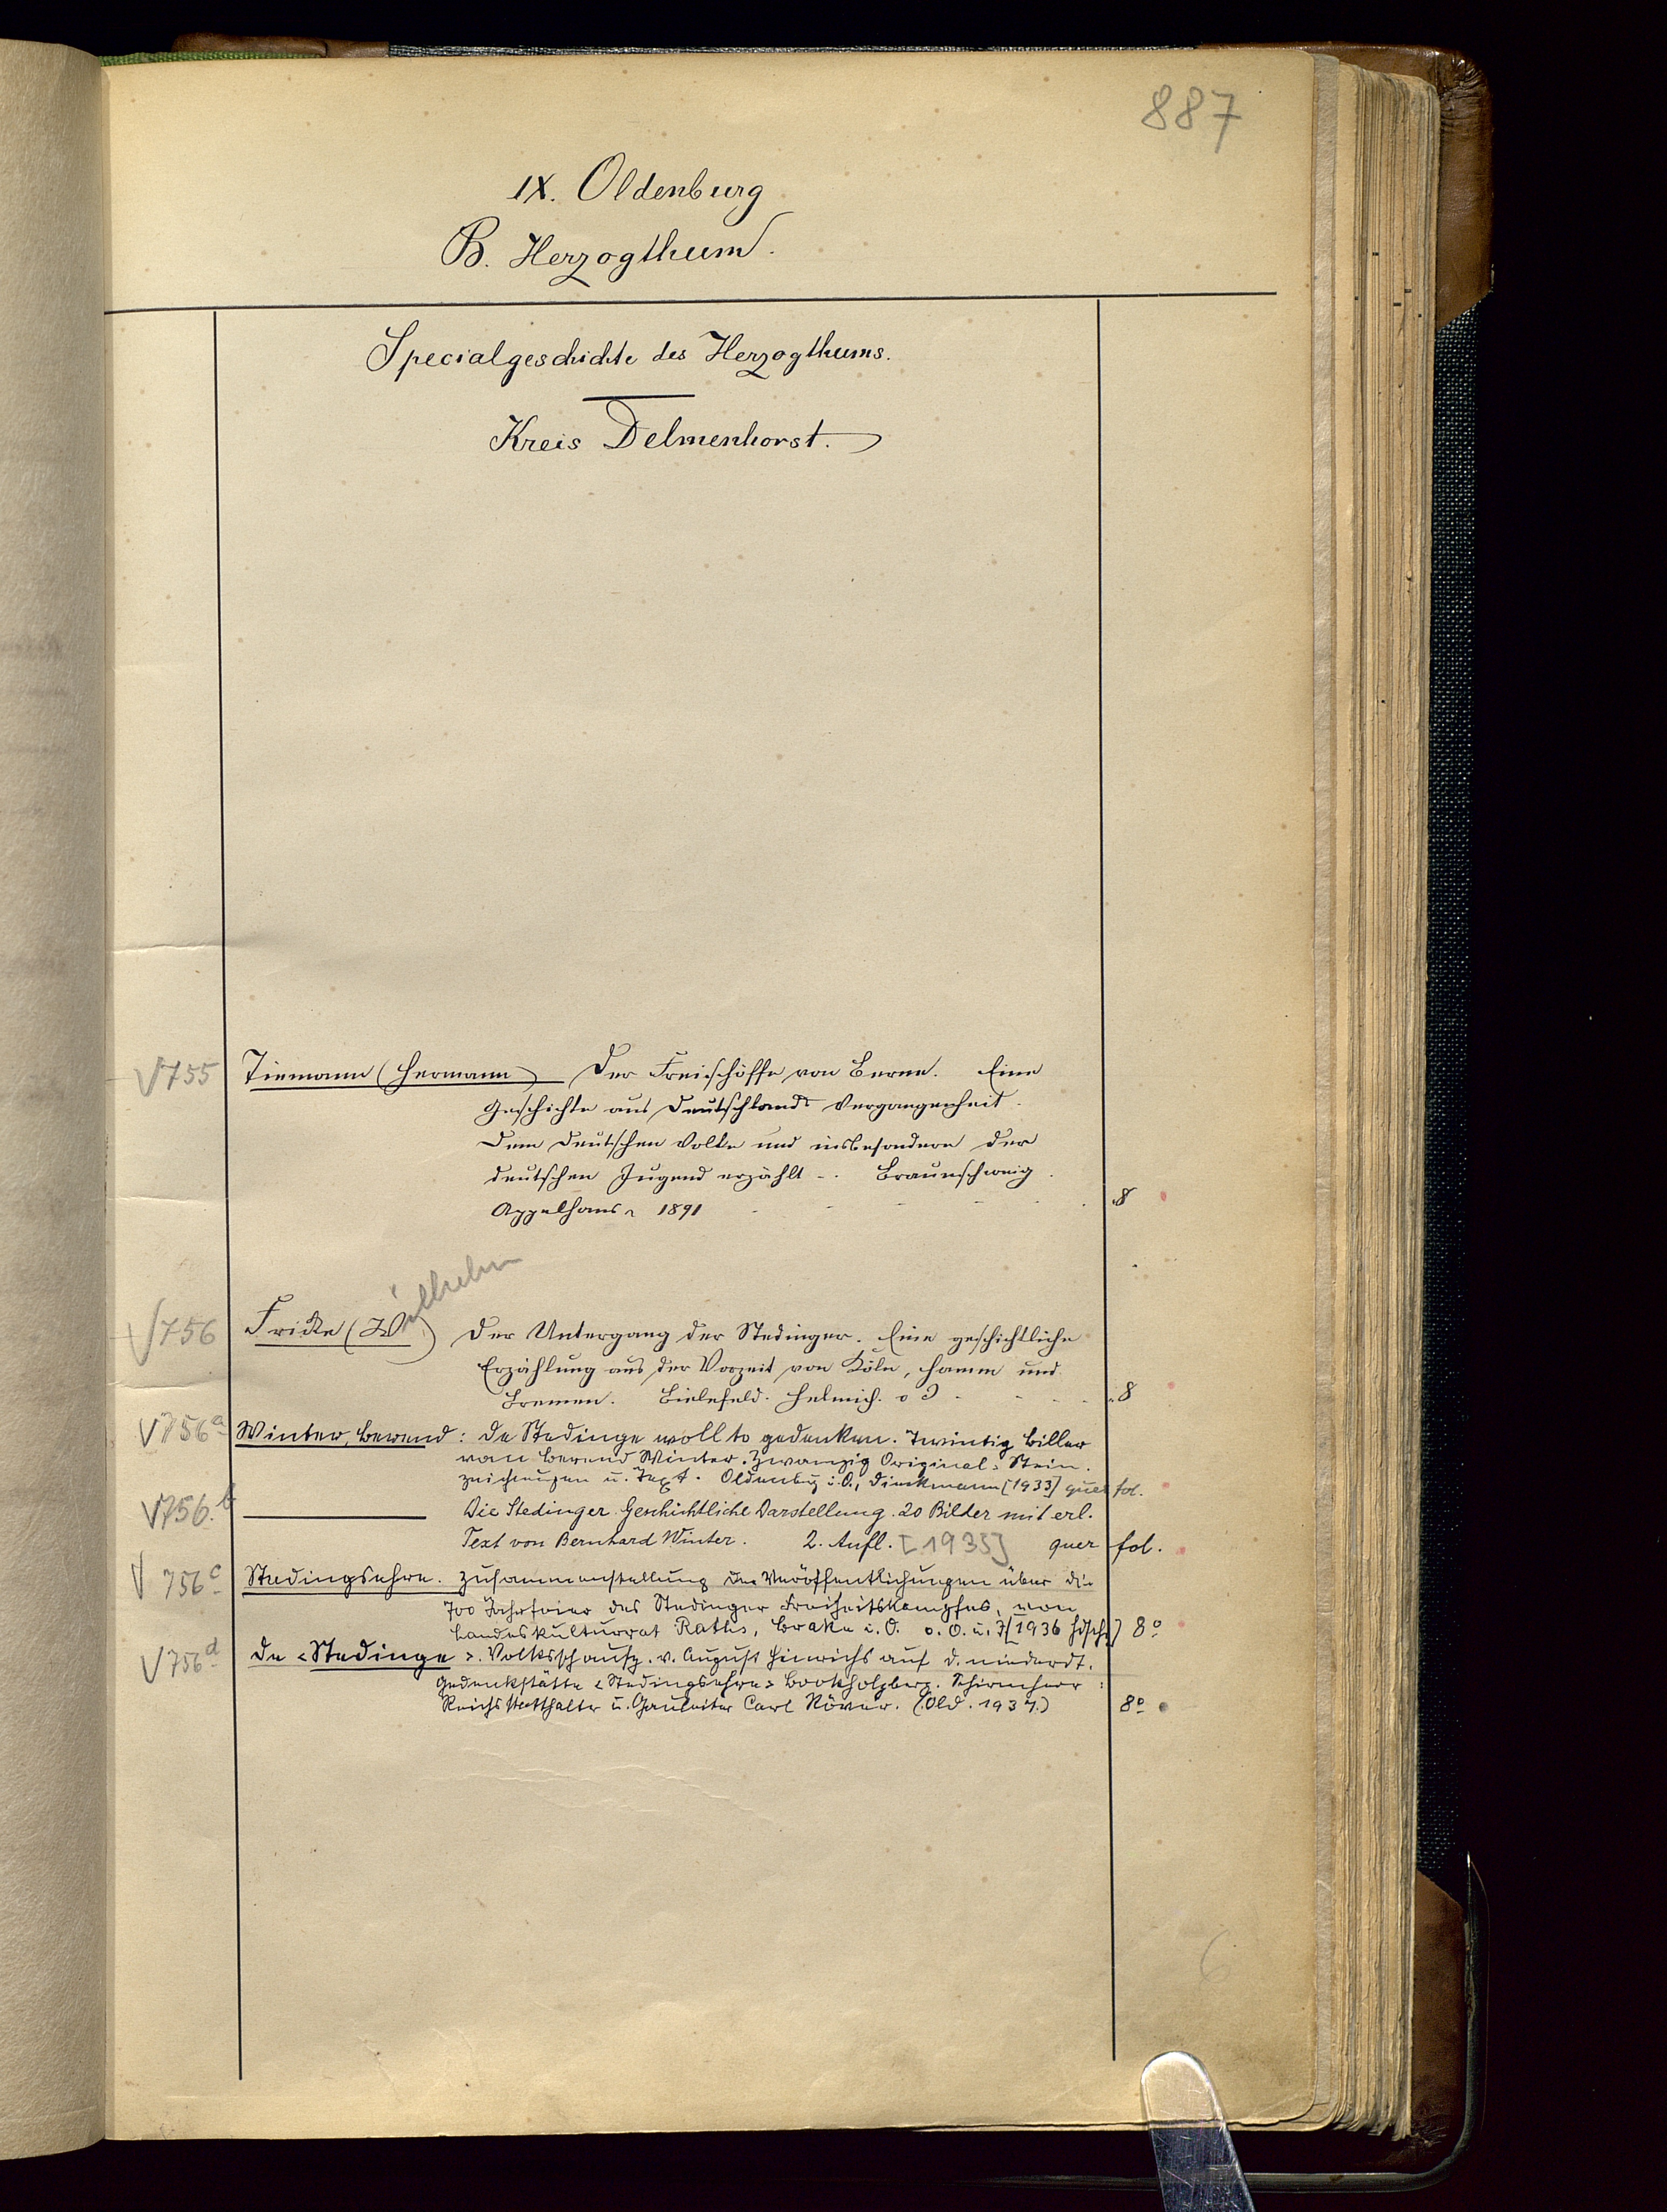 887
IX. Oldenburg
B. Herzogthum.
Specialgeschichte des Herzogthums.
Kreis Delmenhorst.
√755 Tiemann (Hermann) Der Freischöffe von Berne. Eine
Geschichte aus Deutschlands Vergangenheit.
Dem deutschen Volke und insbesondere der
deutschen Jugend erzählt -. Braunschweig.
Appelhans 1891 8
√756 Fricke (Wilhelm) Der Untergang der Stedinger. Eine geschichtliche
Erzählung aus der Vorzeit von Köln, Hamm und
Bremen. Bielefeld. Helmich. o J 8
√756a Winter, Berend: De Stedinge woll to gedenken. Twintig Biller
van Berend Winter. Zwanzig Original-Stein-
zeichnungen u. Text. Oldenburg i. O., Dieckmann [1933] quer fol.
√756.b Die Stedinger. Geschichtliche Darstellung. 20 Bilder mit erl.
Text von Bernhard Winter. 2. Aufl. [1935] quer fol.
√756c Stedingsehre. Zusammenstellung der Veröffentlichungen über die
700 Jahrfeier des Stedinger Freiheitskampfes, von
Landeskulturrat Raths, Brake i. O. o. O. u. J [1936 hdschr.] 8°
√756d De <Stedinge>. Volksschausp. v. August Hinrichs auf d. niederdt.
Gedenkstätte <Stedingsehre> Bookholzberg. Schirmherr:
Reichsstatthalter u. Gauleiter Carl Röver. (Old. 1937.) 8°
6